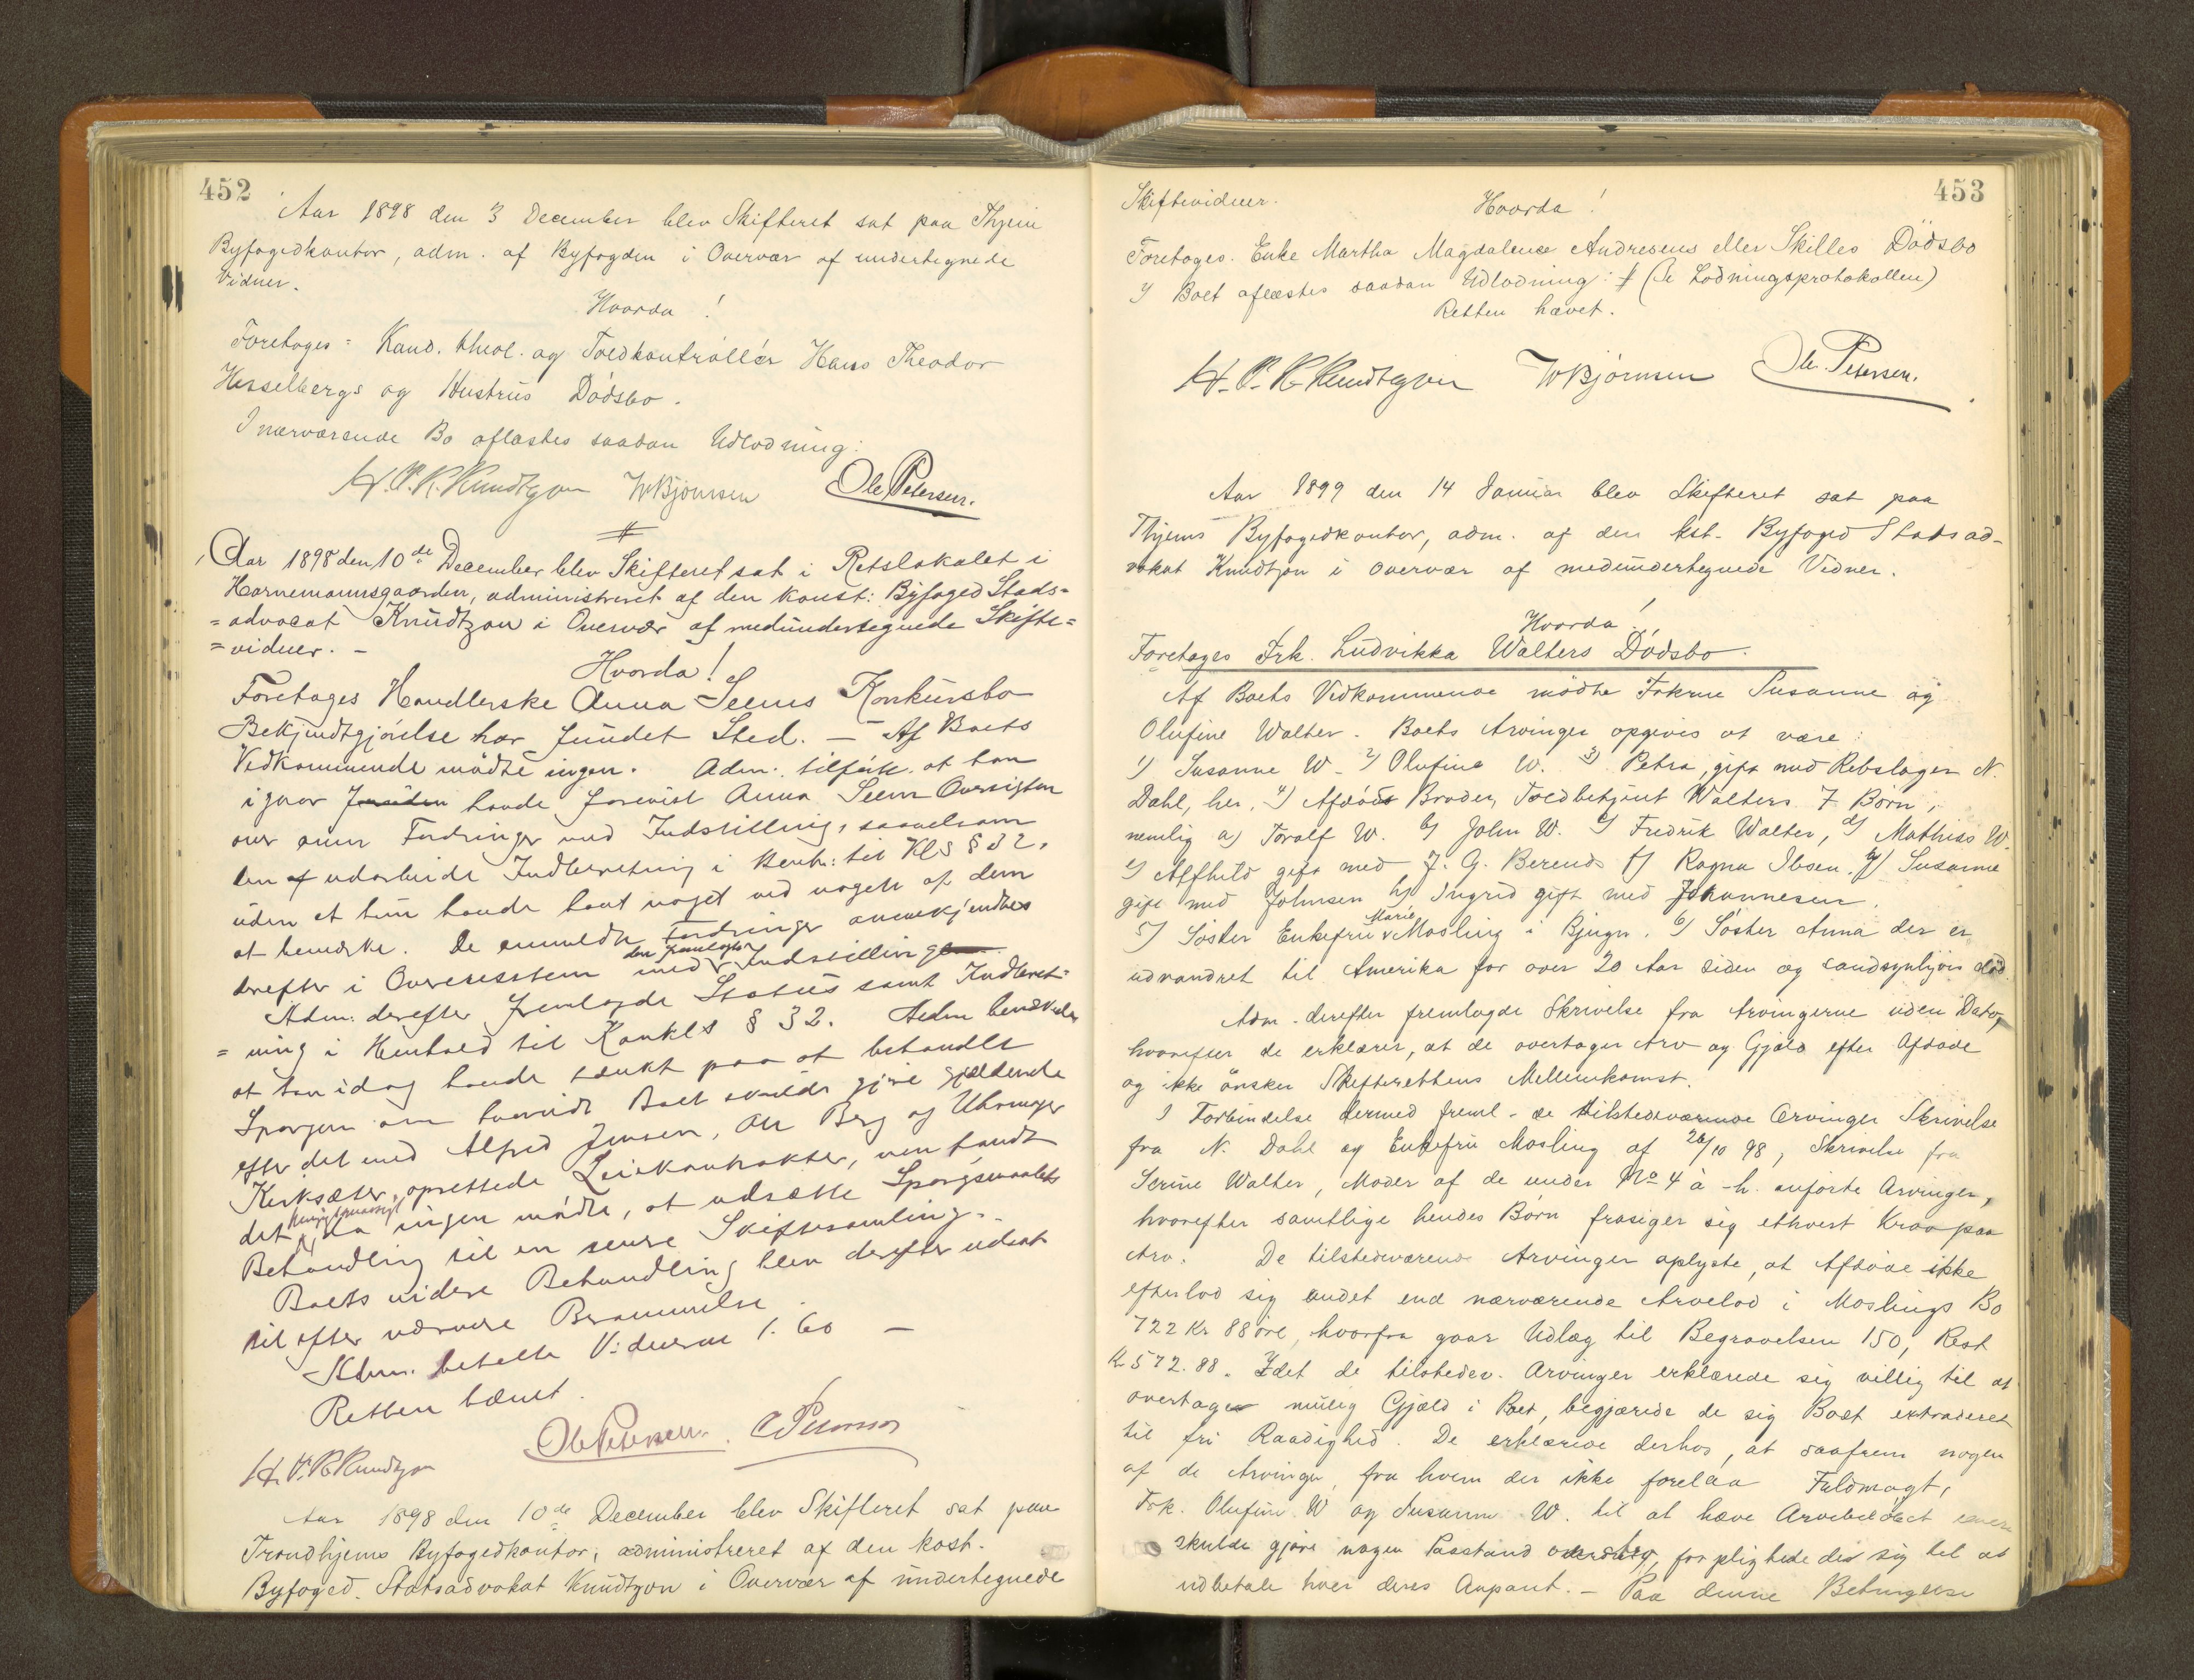 452
Aar 1898 den 3 December blev Skifteret sat paa Thjem
Byfogedkontor, adm. af Byfogden i Overvær af undertegnede
Vidner.
Hvorda!
Foretoges: Kand. theol. og Toldkontrollér Hans Theodor
Hesselbergs og Hustrus Dødsbo.
I nærværende Bo aflæstes saadan Udlodning:
H. P. K. Knudtzon W Bjørnsen Ole Petersen.
Aar 1898 den 10de December blev Skifteret sat i Retslokalet i
Hornemannsgaarden, administreret af den Konst: Byfoged Stads=
=advocat Knudtzon i Overvær af medundertegnede Skifte=
=vidner. –
Hvorda!
Foretages Handlerske Anna Seems Konkursbo
Bekjendtgjørelse har fundet Sted. – Af Boets
Vedkommende mødte ingen. Adm. tilførte at han
i gaar havde forevist Anna Seem Oversigten
over anm Fordringer med Indstilling, saavelsom
den af udarbeide Indberetning i Henh: til Kls § 32,
uden at hun havde havt noget ved nogen af dem
at bemærke. De anmeldte Fordringer anerkjendtes
derefter i Overensstem med den fremlagte Indstilling
Adm. derefter fremlagde Status samt Indberet=
=ning i Henhold til Konkls § 32. Adm bemærkede
at han idag havde tænkt paa at behandle
Spørgsm om hvorvidt Boet skulde gjøre gjældende
efter det med Alfred Jensen, Ole Berg og Uhrmager
Kirksæter, oprettede Leiekontrakter, men fandt
det hensigtsmæssigt da ingen mødte, at udsætte Spørgsmaalets
Behandling til en senere Skiftesamling.
Boets videre Behandling blev derefter udsat
til efter nærmere Berammelse.
Adm. betalte Vidnerne 1. 60 –
Retten hævet.
H. P. K. Knudtzon Ole Petersen.
Aar 1898 den 10de December blev Skifteret sat paa
Trondhjems Byfogedkontor, administreret af den kost.
Byfoged. Statsadvokat Knudtzon i Overvær af undertegnede
453
Skiftevidner.
Hvorda!
Foretoges. Enke Martha Magdalena Andresens eller Skilles Dødsbo
I Boet aflæstes saadan Udlodning: (Se Lodningsprotokollen)
Retten hævet.
H. P. K. Knudtzon W Bjørnsen Ole Petersen.
Aar 1899 den 14 Januar blev Skifteret sat paa
Thjems Byfogedkontor, adm. af den kst. Byfoged Statsad-
vokat Knudtzon i Overvær af medundertegnede Vidner.
Hvorda!
Foretages Frk. Ludvikka Walters Dødsbo.
Af Boets Vedkommende mødte Frkrne Susanne og
Olufine Walter. Boets Arvinger opgives at være:
1) Susanne W. 2) Olufine W. 3) Petra, gift med Rebslager N.
Dahl, her. 4) Afdøde Broder, Toldbetjent Walters 7 Børn,
nemlig a) Toralf W. b) John W. c) Fredrik Walter, d) Mathias W.
e) Alfhild gift med J. G. Berends f) Ragna Ibsen. g) Susanne
gift med Johnsen h) Ingrid gift med Johannesen.
5) Søster Enkefru Marie Mosling i Bjugn. 6) Søster Anna der er
udvandret til Amerika for over 20 Aar siden og sandsynligvis død.
Adm. derefter fremlagde Skrivelse fra Arvingerne uden Dato,
hvorefter de erklærer, at de overtager Arv og Gjæld efter Afdøde
og ikke ønsker Skifterettens Mellemkomst.
I Forbindelse dermed freml. de tilstedeværende Arvinger Skrivelse
fra N. Dahl og Enkefru Mosling af 26/10 98, Skrivelse fra
Serine Walter, Moder af de under No 4 à -h. anførte Arvinger,
hvorefter samtlige hendes Børn frasiger sig ethvert Krav paa
Arv. De tilstedeværende Arvinger oplyste, at Afdøde ikke
efterlod sig andet end nærværende Arvelod i Moslings Bo
722 Kr 88 øre, hvorfra gaar Udlæg til Begravelsen 150, Rest
Kr 572.88. Idet de tilstedev. Arvinger erklærede sig villig til at
overtage mulig Gjæld i Boet, begjærede de sig Boet extraderet
til fri Raadighed. De erklærede derhos, at saafrem nogen
af de Arvinger, fra hvem der ikke forelaa Fuldmagt,
Frk. Olufine W og Susanne W. til at hæve Arvebeløbet
skulde gjøre nogen Paastand forpligtede de sig til at
udbetale hver deres Anpart. – Paa denne Betingelse